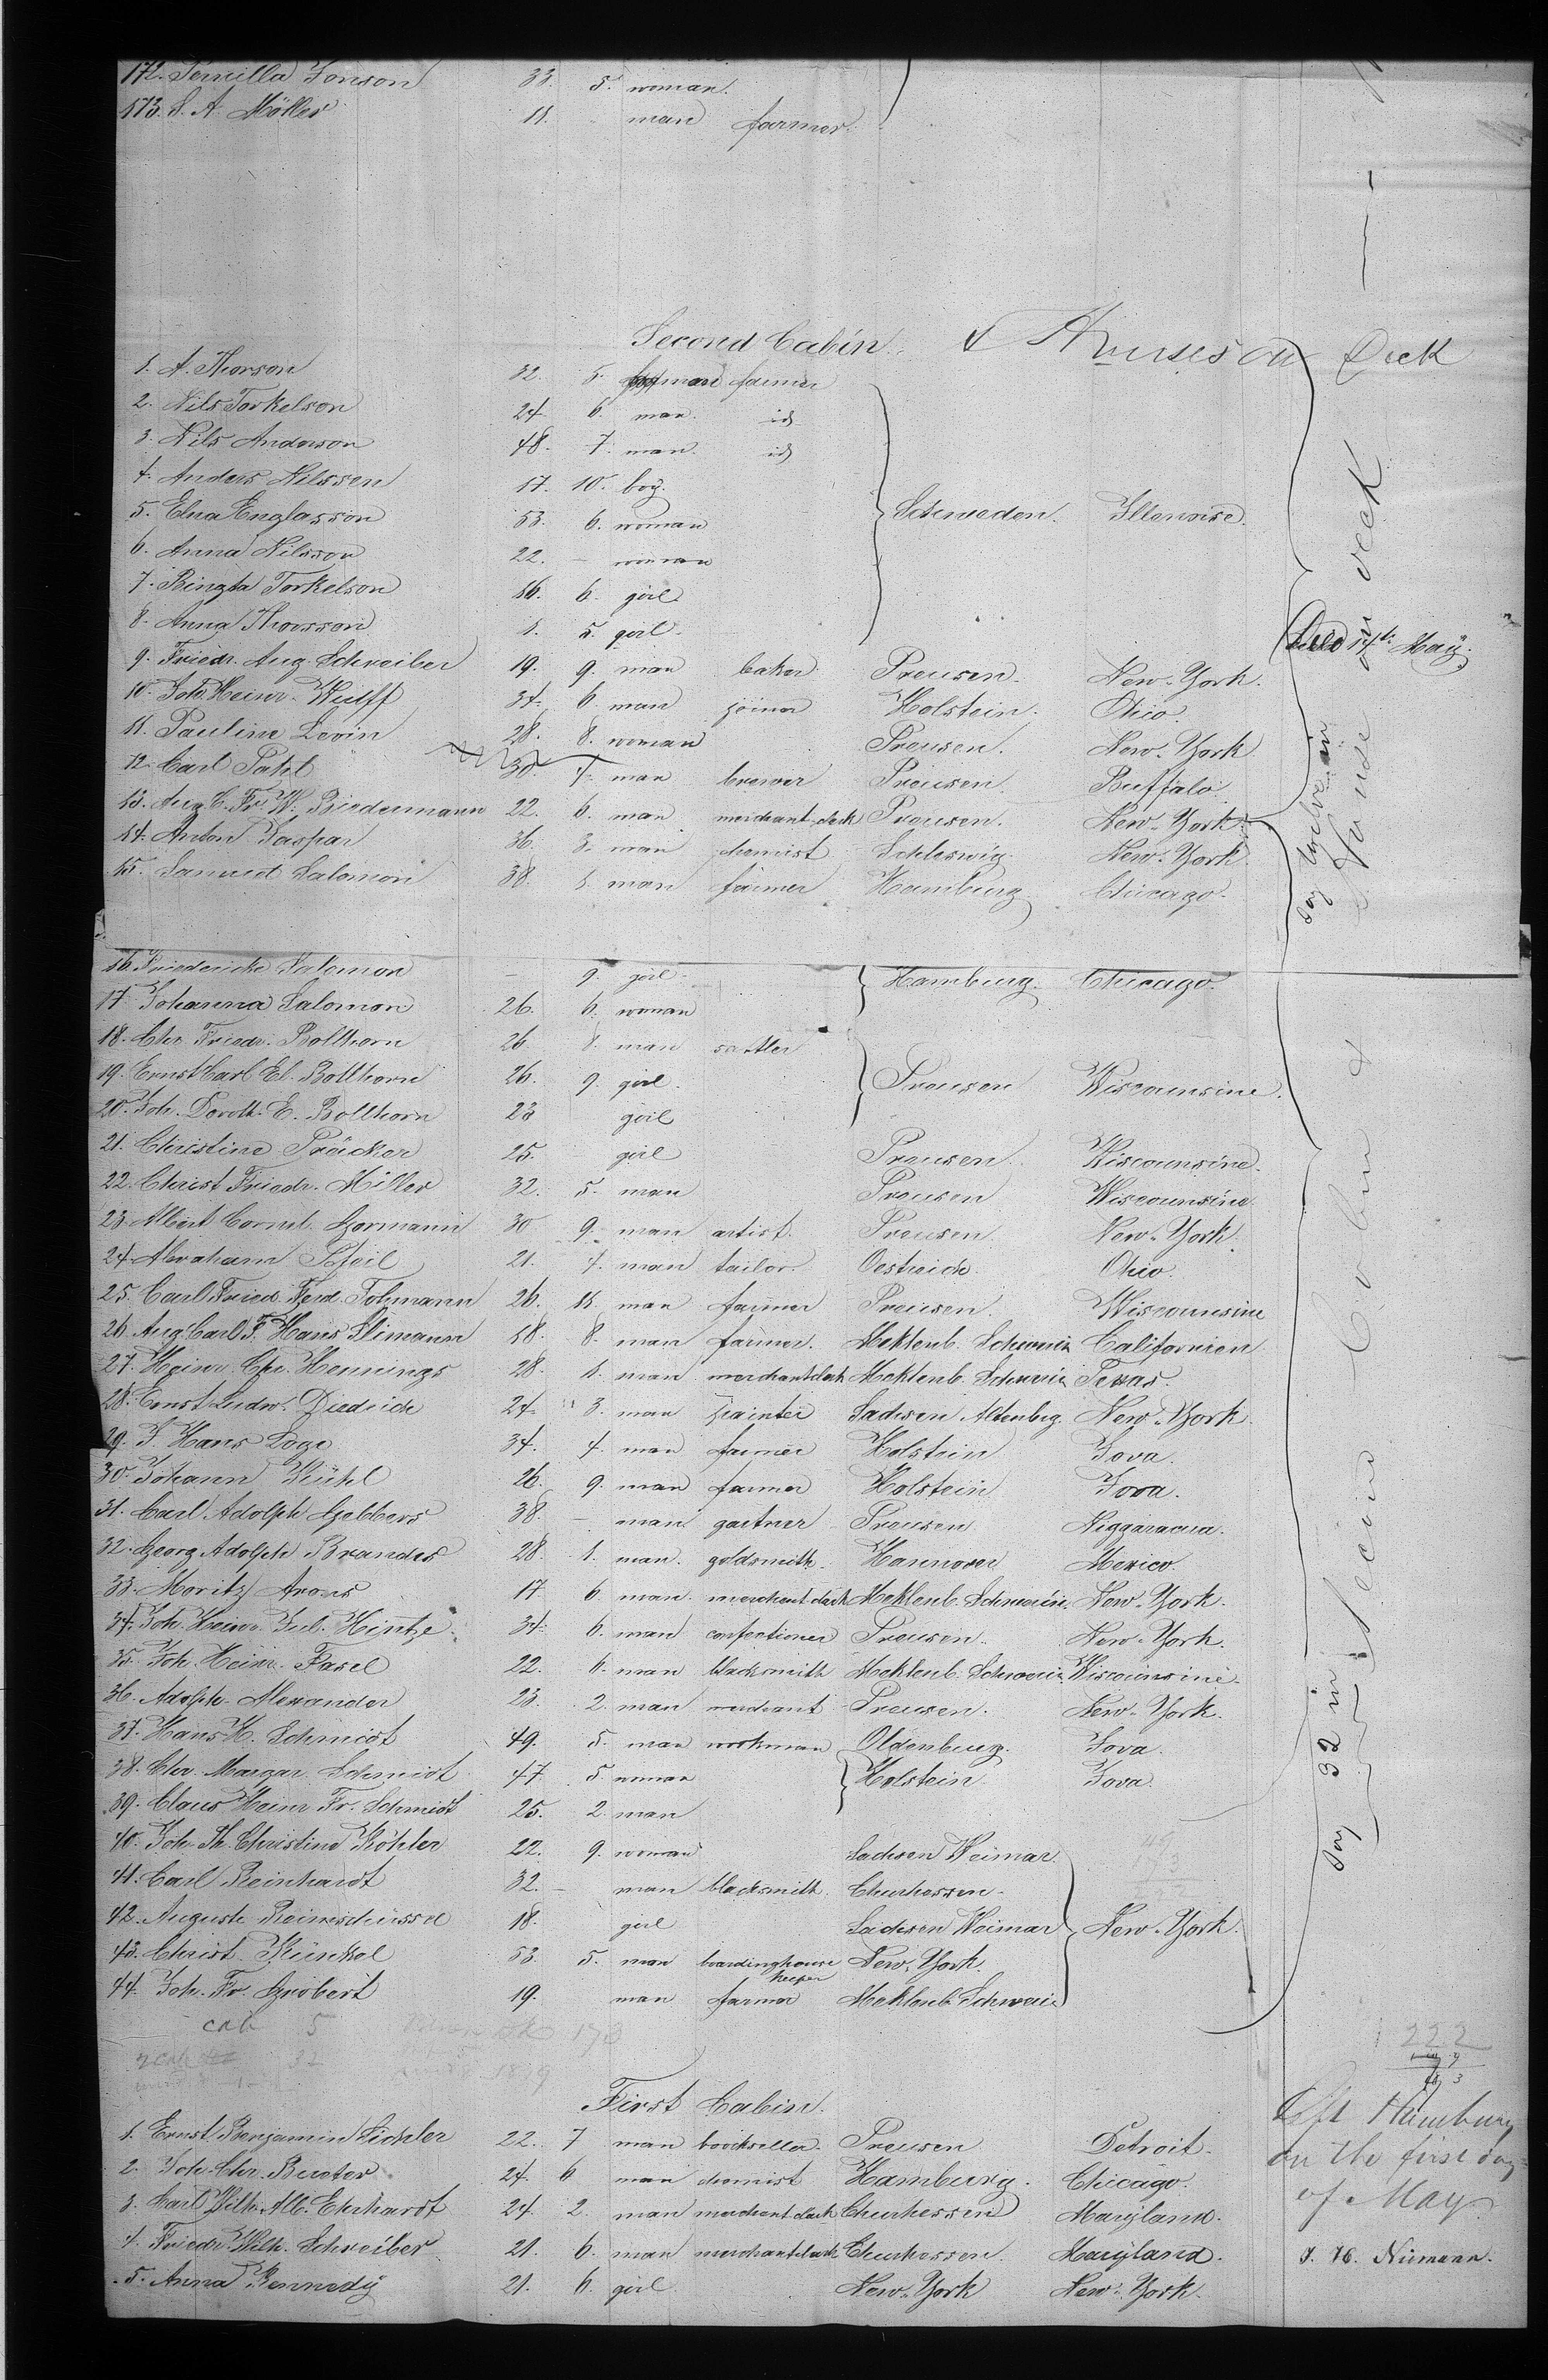 172. Pernilla Jonson 33. 5. woman.
173. S. A. Möller 11. man farmer.
Second Cabin & House on Deck
1. A. Thorson 32. 5. man farmer
2. Nils Torkelson 24. 6. man. id
3. Nils Anderson 48. 7. man. id
4. Anders Nilssen 17. 10. boy.
5. Elna Englasson 53. 6. woman Schweden. Illenoise.
6. Anna Nilsson 22. – woman
7. Bengta Torkelson 16. 6. girl.
8. Anna Thorsson 1. 5. girl. Died 14th May.
9. Friedr. Aug. Schreiber 19. 9. man baker Preusen. New-York.
10. Joh. Heinr. Wulff 34. 6. man joiner Holstein. Ohio.
11. Pauline Levin 28. 8. woman Preusen. New-York
12. Carl Pahl 30. 4. man brewer Preusen. Buffalo.
13. Aug. C. Fr. W. Biedermann 22. 6. man merchant clerk Preusen. New-York.
14. Anton Jaspar 36. 3. man chemist Schleswig. New-York.
15. Samuel Salomon 38. 1. man farmer Hamburg Chicago.
16. Friedericke Salomon – 9. girl. Hamburg. Chicago.
17. Johanna Salomon 26. 6. woman
18. Chr. Friedr. Bollhorn 26. 8. man sattler
19. Ernst Carl El. Bollhorn 26. 9. girl. Preusen Wiscounsine.
20. Joh. Doroth. E. Bollhorn 23 girl
21. Christine Präcker 25. girl Preusen. Wiscounsine.
22. Christ. Friedr. Miller 32. 5. man Preusen Wiscounsine.
23. Albert Cornel. Gormann 30 9. man artist. Preusen. New-York.
24. Abraham Pfeil 21. 4. man tailor. Oestreich. Ohio.
25. Carl Fried. Ferd. Fohmann 26. 11. man farmer Preusen. Wiscounsine
26. Aug. Carl F. Hans Slimann 18. 8. man farmer. Meklenb. Schwerin Californien
27. Heinr. Chr. Hennings 28. 1. man merchant clerk Meklenb. Schwerin Texas.
28. Ernst Ludw. Diedrich 24. 3. man painter Sachsen Altenbrg. New-York.
29. J. Hans Loge 34. 4. man farmer Holstein Iova.
30. Johann Kühl 26. 9. man farmer Holstein Iova.
31. Carl Adolph Gebbers 38. – man gartner Preusen Niggaracua.
32. Georg Adolph Brandes 28. 1. man. goldsmith. Hannover Mexico.
33. Moritz Arons 17 6. man. merchant clerk Meklenb. Schwerin. New-York.
34. Joh. Heinr. Jul. Hintze. 34. 6. man confectioner Preusen. New-York.
35. Joh. Heinr. Fasel 22. 6. man blacksmith Meklenb. Schwerin Wiscounsine.
36. Adolph. Alexander 23. 2. man merchant Preusen. New-York.
37. Hans H. Schmidt 49. 5. man workman Oldenburg. Iova.
38. Chr. Margar. Schmidt 47 5. woman Holstein. Iova.
39. Claus Heinr. Fr. Schmidt 25. 2. man
40. Joh. Th. Christine Köhler 22. 9. woman Sachsen Weimar.
41. Carl Reinhardt 32. – man blacksmith. Churhessen.
42. Auguste Reimschüssel 18. girl Sachsen Weimar New-York.
43. Christ. Künkel 53. 5. man boardinghouse keeper New-York.
44. Joh. Fr. Grobert 19. man farmer Meklenb. Schwerin
cab 5
32
222
First Cabin.
1. Ernst Benjamin Eichler 22. 7 man bookseller. Preusen Detroit.
2. Joh. Chr. Buroter. 24. 6 man chemist Hamburg. Chicago.
3. Carl Wilh. Alb. Ehrhardt 24. 2. man merchant clerk Churhessen Maryland.
4. Friedr. Wilh. Schreiber 21. 6. man merchant clerk Churhessen. Maryland.
5. Anna Kennedy 21. 6. girl. New-York New-York.
Left Hamburg
on the first day
of May
J. H. Niemann.
Say twelve in
House on deck
Say 32 in
Second Cabin &